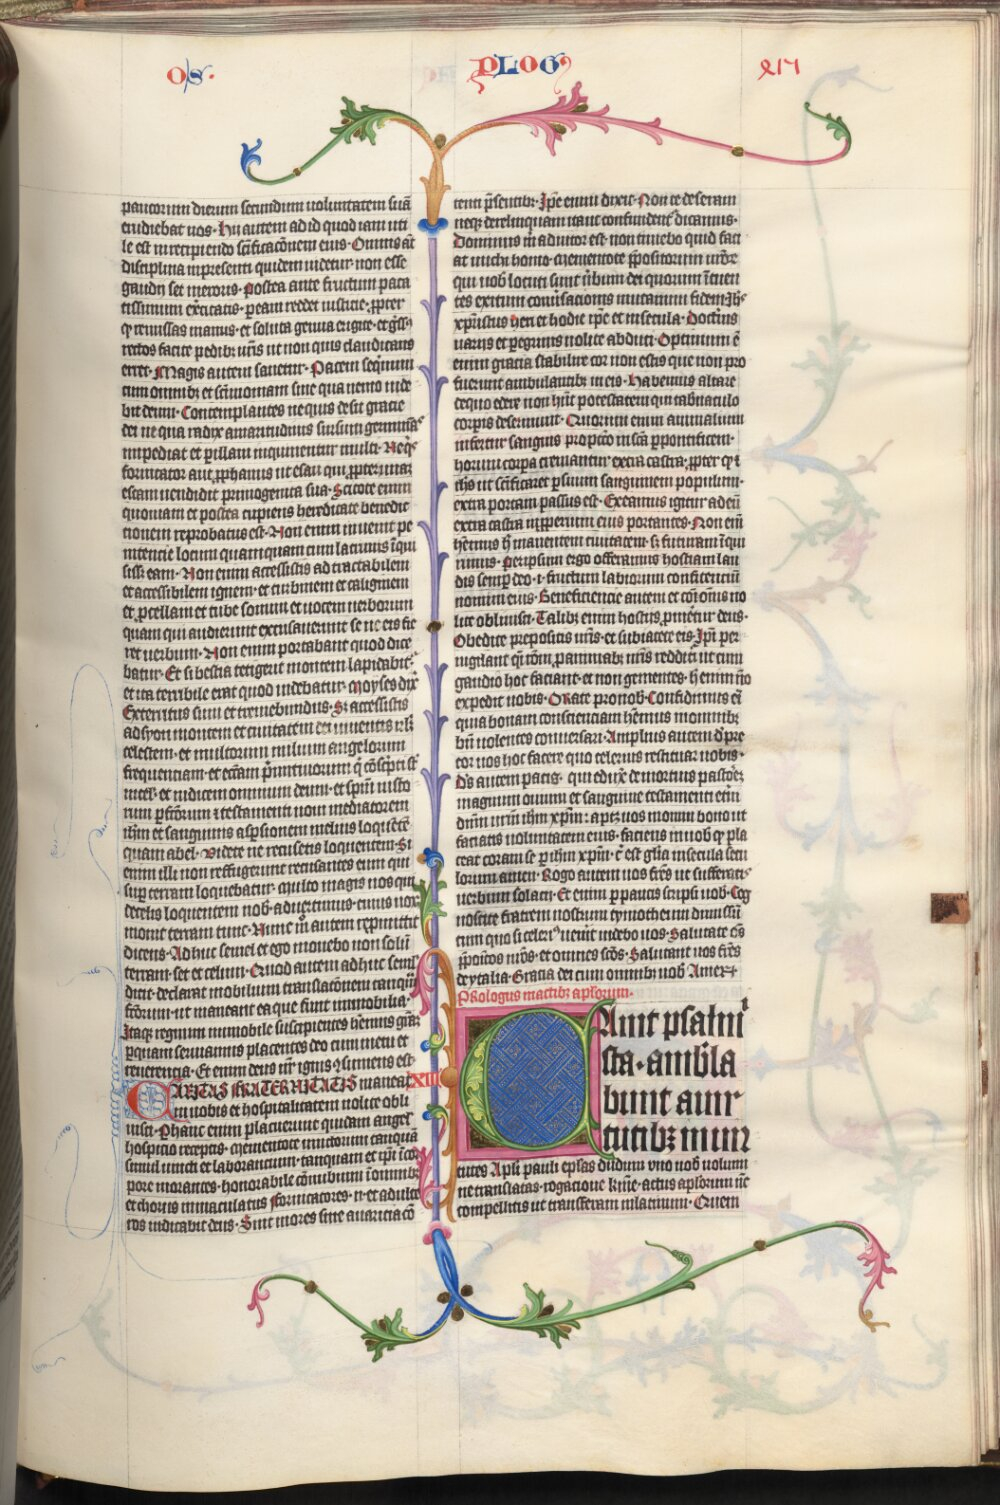 OS·
PLOG9
paucorum dierum secundum uoluntatem suā
erudiebat uos· Hic autem ad id quod iam uti
le est in recipiendo sc̄ificac̄onem eius· Omnis aūt
disciplina in presenti quidem uidetur non esse
gaudij set meroris· postea aute fructum paca
tissimum
remissas manus· et soluta genua erigite· et
rectos facite pedibꝫ ur̄is ut non quis claudicans
erret· Magis autem sanetur· Pacem
cum omnibꝫ et sc̄imoniam sine qua nemo uide
bit deum· Contemplantes ne quis desit gracie
dei ne qua radix amaritudinis sursum germinās
impediat et ꝑ illam inquinentur multi· Neqꝫ
fornicator aut ꝓphanus ut esau qui ꝓpter unaꝫ
escam uendidit primogenita sua· Scitote enim
quoniam et postea cupiens hereditate benedic
tionem reprobatus est· Non enim inuenit pe
nitencie locum quamquam cum lacrimis īqui
sisset eam· Non enim accessistis ad tractabilem
et accessibilem ignem· et turbinem et caliginem
et ꝓcellam et tube sonum et uocem uerborum
quam qui audierunt excusauerunt se ne eis fie
ret uerbum· Non enim portabant quod dice
batur· Et si bestia tetigerit montem lapidabitᷣ·
et ita terribile erat quod uidebatur· moyses dix̄
Exterritus sum et tremebundus· S; accessistis
ad syon montem et ciuitatem dei uiuentis irl̄m
celestem· et multorum milium angelorum
frequenciam· et ecc̄am p̄mitiuorum q̄ cōsc̄pti st̄
in cel· et iudicem omnium deum· et sp̄m iusto
rum ꝑf̄torum ⁊ testamenti noui mediatorem
ih̄m et sanguinis aspersionem melius loq̄ntē
quam abel· Videte ne recusetis loquentem· Si
enim illi non effugerunt recusantes eum qui
suꝑ terram loquebatur· multo magis nos qui
de celis loquentem nob̄ aduertimus· cuius uox
mouit terram tunc· Nunc aūt autem repmittit
dicens· Adhuc semel et ego mouebo non solū
terram· set et celum· Quod autem adhuc semel
dicit· declarat mobilium translac̄onem tanquā
f̄torum· ut maneant ea que sunt immobilia·
Itaqꝫ regnum immobile suscipientes hēmus grā·
ꝑ quam seruiamus placentes deo cum metu et
reuerencia· Et enim deus nr̄ ignis ꝯsumens est·
CARITAS FRATERNITATIS maneat XIII
in uobis et hospitalitatem nolite obli
uisci· Per hanc enim placuerunt quidam angel̄
hospicio receptis· mementote uinctorum tanquā
simul uincti et laborancium· tanquam et ip̄i ī cor
pore morantes· honorabile cōnubium ī omnibꝫ
et thorus immaculatus fornicatores· n̄ et adulte
ros iudicabit deus· Sint mores sine auaricia cō
tenti p̄sentibꝫ· Ip̄e enim dixit· Non te deseram
neqꝫ derelinquam ita ut confidentē dicamus·
Dominus m̄ adiutor est· non timebo quid faci
at michi homo· mementote p̄positorum ur̄or̄
qui uob̄ locuti sunt ūbum dei quorum ītuen
tes exitum conuersacionis imitamini fidem· Ih̄s
xp̄istus heri et hodie ip̄e et in secula· Doctrīs
uariis et peregrinis nolite abduci· Optimum ē
enim gracia stabilire cor non escis que non pro
fuerunt ambulantibꝫ in eis· Habemus altare
de quo edere non hn̄t potestatem qui tab̄naculo
corpīs deseruiunt· Quorum enim animalium
infertur sanguis pro pcc̄o in sc̄a ꝑ pontificem·
horum corpora cremantur extra castra· ꝓpter qd̄ ⁊
ih̄s ut sc̄ificaret ꝑ suum sanguinem populum·
extra portam passus est· Exeamus igitur ad eū
extra castra inꝓperium eius portantes· Non eni
hēmus h̄ manentem ciuitatem· s; futuram īqui
rimus· Per ipsum ergo offeramus hostiam lau
dis semꝑ deo· i· fructum labiorum confitencium
nomini eius· Beneficiencie autem et cōīōnis no
lite obliuisci· Talibꝫ enim hostijs ꝓmēret̄ deus·
Obedite prepositis ur̄is· et subiacete eis· Ip̄i per
uigilant q̄i rōm̄ ꝓ animabꝫ ur̄is reddituri ut cum
gaudio hoc faciant· et non gementes· h̄ enim nō
expedit uobis· Orate pro nob̄· Confidimus eī
quia bonam conscienciam hēmus in omnibꝫ
bn̄ uolentes conuersari· Amplius autem d̄pre
cor uos hoc facere quo celerius restituar uobis·
Ds̄ autem pacis· qui eduxit de mortuis pastorē
magnum ouium et sanguine testamenti et̄ni
dn̄m nr̄m ih̄m xp̄m· aptet uos in omni bono ut
faciatis uoluntatem eius· faciens in uob̄ qd̄ pla
ceat coram se ꝑ ih̄m xp̄m· c̄ est glīa in secula secu
lorum amen· Rogo autem uos fr̄es ut sufferatis
uerbum solacij· Et enim ꝑ paucis scripsi uob̄· Cog
noscite fratrem nostrum tymotheum dimissū·
cum quo si celeri9 uenit uidebo uos· Salutate oēs
p̄positos ur̄os· et omnes sc̄os· Salutant uos fr̄es
de ytalia· Gracia dei cum omnibꝫ uob̄ Amen
Prologus in actibꝫ apl̄orum·
Canit psalmi
sta· ambl̄a
bunt de uir
tutibꝫ in uir
tutes Apl̄i pauli ep̄las dudum uno uob̄ uolumi
ne translatas· rogacione kr̄īe· actus apl̄orum me
compellitis ut transferam in latinum· Quem